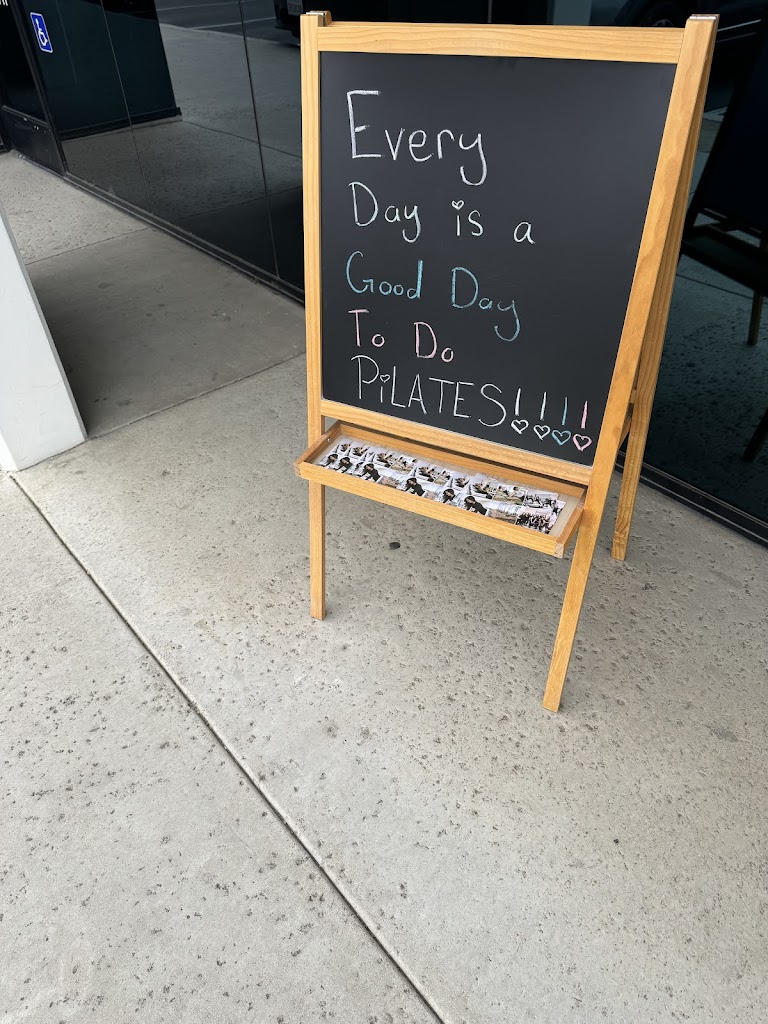 Every
Day is a
Good Day
To Do
PiLATES!!!!